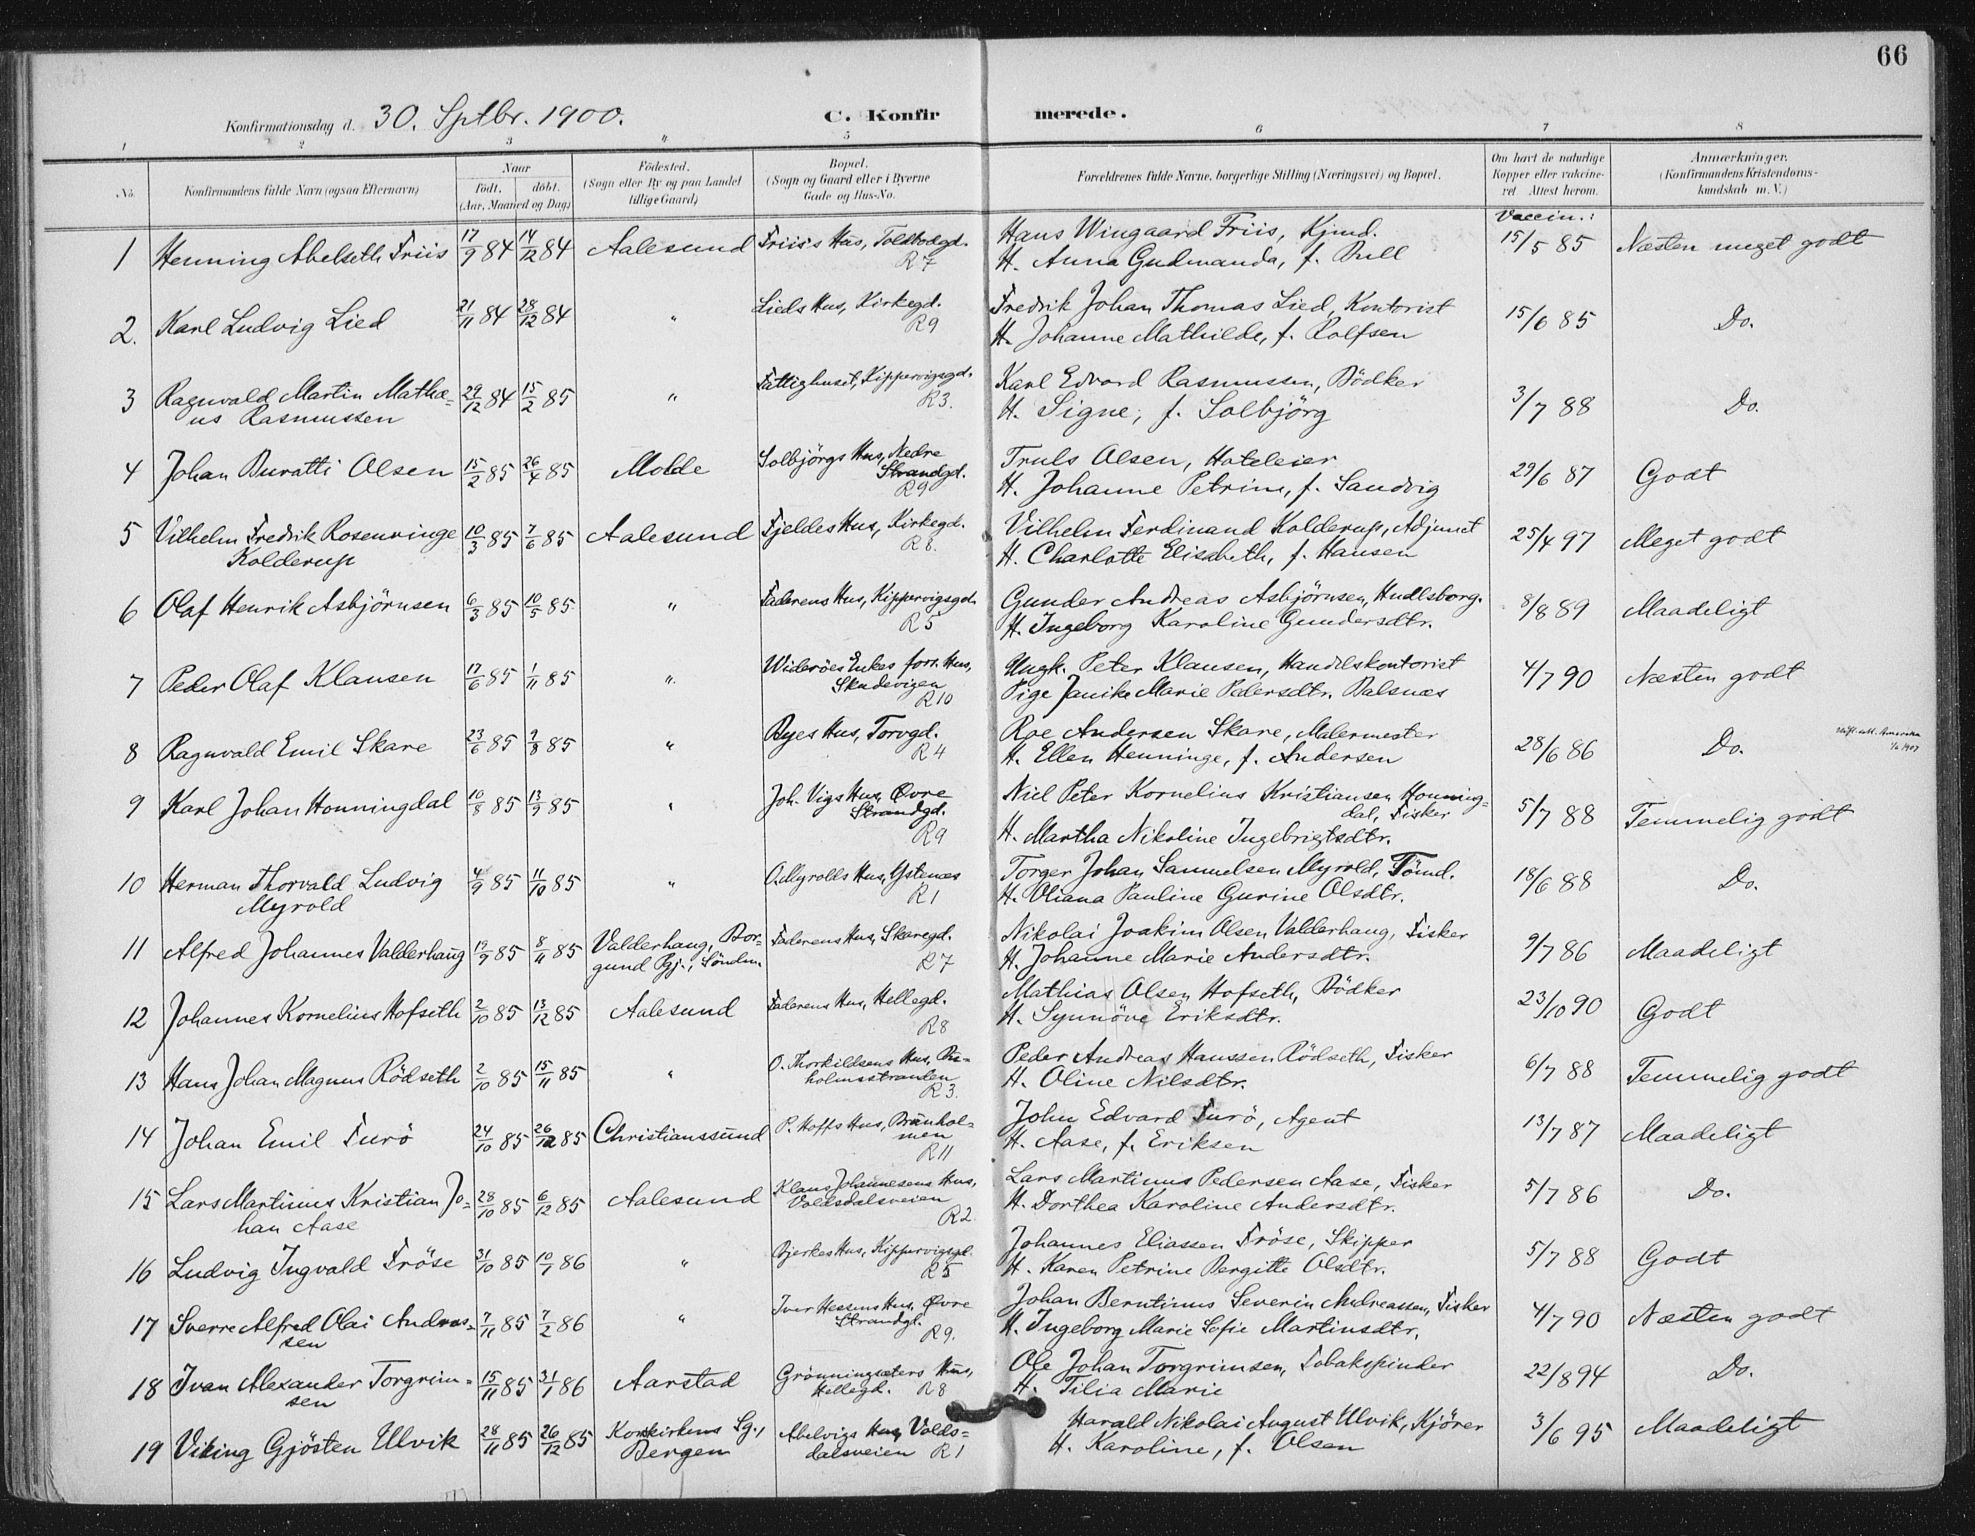 66
Konfirmationsdag d. 30. Septbr. 1900. C. Konfirmerede.
1 2 3 4 5 6 7 8
No. Konfirmandens fulde Navn (ogsaa Efternavn) Naar födt. döbt. (Aar, Maaned og Dag) Födested. (Sogn eller By og paa Landet tillige Gaard) Bopæl. (Sogn og Gaard eller i Byerne Gade og Hus-No. Forældrenes fulde Navne, borgerlige Stilling (Næringsvei) og Bopæl. Om havt de naturlige Kopper eller vaccineret Attest herom. Anmærkninger. (Konfirmandens Kristendomskundskab m. V.)
Vaccin.:
1 Henning Abelseth Friis 17/9 84 14/12 84 Aalesund Friis's Hus, Toldbodgd. R7 Hans Wingaard Friis, Kjmd. 15/5 85 Næsten meget godt
H. Anna Gudmanda, f. Bull
2. Karl Ludvig Lied 21/11 84 28/12 84 " Lieds Hus, Kirkegd. R9 Fredrik Johan Thomas Lied, Kontorist 15/6 85 Do.
H. Johanne Mathilde, f. Rolfsen
3 Ragnvald Martin Mathæ- 29/12 84 15/2 85 " Fattighuset, Kippervigsgd. R3. Karl Edvard Rasmussen, Bödker 3/7 88 Do.
us Rasmussen H. Signe, f. Solbjörg
4 Johan Buratti Olsen 15/2 85 26/4 85 Molde Solbjörgs Hus, Nedre Strandgd. R9 Truls Olsen, Hoteleier 29/6 87 Godt
H. Johanne Petrine, f. Sandvig
5 Vilhelm Fredrik Rosenvinge 10/3 85 7/6 85 Aalesund Fjeldes Hus, Kirkegd. R8. Vilhelm Ferdinand Kolderup, Adjunct 25/4 97 Meget godt
Kolderup H. Charlotte Elisabeth, f. Hansen
6 Olaf Henrik Asbjörnsen 6/3 85 10/5 85 " Faderens Hus, Kippervigsgd. R5 Gunder Andreas Asbjörnsen, Hndlsborg. 8/8 89 Maadeligt
H. Ingeborg Karoline Gundersdtr.
7 Peder Olaf Klausen 17/6 85 1/11 85 " Wideröes Enkes forr. Hus, Skudevigen R10 Ungk. Peter Klausen, Handelskontorist 4/7 90 Næsten godt
Pige Janike Marie Pedersdtr. Balsnæs
8 Ragnvald Emil Skare 23/6 85 9/8 85 " Byes Hus, Torvgd. R4 Roe Andersen Skare, Malermester 28/6 86 Do.
H. Ellen Henninge, f. Andersen
9 Karl Johan Honningdal 10/8 85 13/9 85 " Joh. Vigs Hus, Øvre Strandgd. R9 Niel Peter Kornelius Kristiansen Honning- 5/7 88 Temmelig godt
dal, Fisker
H. Martha Nikoline Ingebrigtsdtr.
10 Herman Thorvald Ludvig 4/9 85 11/10 85 " O. Myrolds Hus, Ystenæs R1 Torger Johan Samuelsen Myrold, Tömd. 18/6 88 Do.
Myrold H. Oliana Pauline Gurine Olsdtr.
11 Alfred Johannes Valderhaug 19/9 85 8/11 85 Valderhaug, Bor- gund Pgj., Söndm. Faderens Hus, Skaregd. R7 Nikolai Joakim Olsen Valderhaug, Fisker 9/7 86 Maadeligt
H. Johanne Marie Andersdtr.
12 Johannes Kornelius Hofseth 2/10 85 13/12 85 Aalesund Faderens Hus, Hellegd. R8 Mathias Olsen Hofseth, Bödker 23/10 90 Godt
H. Synnöve Eriksdtr.
13 Hans Johan Magnus Rödseth 2/10 85 15/11 85 " O. Thorkildsens Hus, Bu- holmsstranden R3. Peder Andreas Hanssen Rödseth, Fisker 6/7 88 Temmelig godt
H. Oline Nilsdtr.
14 Johan Emil Furö 24/10 85 26/12 85 Christianssund P. Hoffs Hus, Brunhol- men R11 John Edvard Furö, Agent 13/7 87 Maadeligt
H. Aase, f. Eriksen
15 Lars Martinus Kristian Jo- 28/10 85 6/12 85 Aalesund Klaus Johannesens Hus, Voldsdalsveien R2. Lars Martinus Pedersen Aase, Fisker 5/7 86 Do.
han Aase H. Dorthea Karoline Andersdtr.
16 Ludvig Ingvald Fröse 31/10 85 10/1 86 " Bjerkes Hus, Kippervigsgd. R5 Johannes Eliassen Fröse, Skipper 5/7 88 Godt
H. Karen Petrine Bergitte Olsdtr.
17 Sverre Alfred Olai Andreas- 7/11 85 7/2 86 " Iver Hessens Hus, Øvre Strandgd. R9. Johan Berntinus Severin Andreassen, Fisker 4/7 90 Næsten godt
sen H. Ingeborg Marie Sofie Martinsdtr.
18 Ivan Alexander Torgrim- 15/11 85 31/1 86 Aarstad Grönningsæters Hus, Hellegd. R8 Ole Johan Torgrimsen, Tobakspinder 22/8 94 Do.
sen H. Tilia Marie
19 Viking Gjösten Ulvik 28/11 85 26/12 85 Korskirkens Sg., Bergen Abelvigs Hus, Volds- dalsveien R1 Harald Nikolai August Ulvik, Kjörer 3/6 95 Maadeligt
H. Karoline, f. Olsen